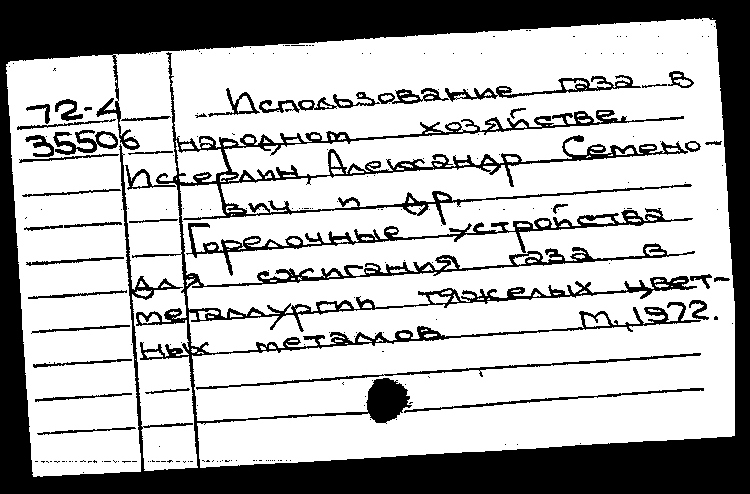 72-4 Использование газа в
35506 народном хозяйстве.
Иссерлин, Александр Семено-
вич и др.
Горелочные устройства
для сжигания газа в
металлургии тяжелых цвет-
ных металлов М., 1972.